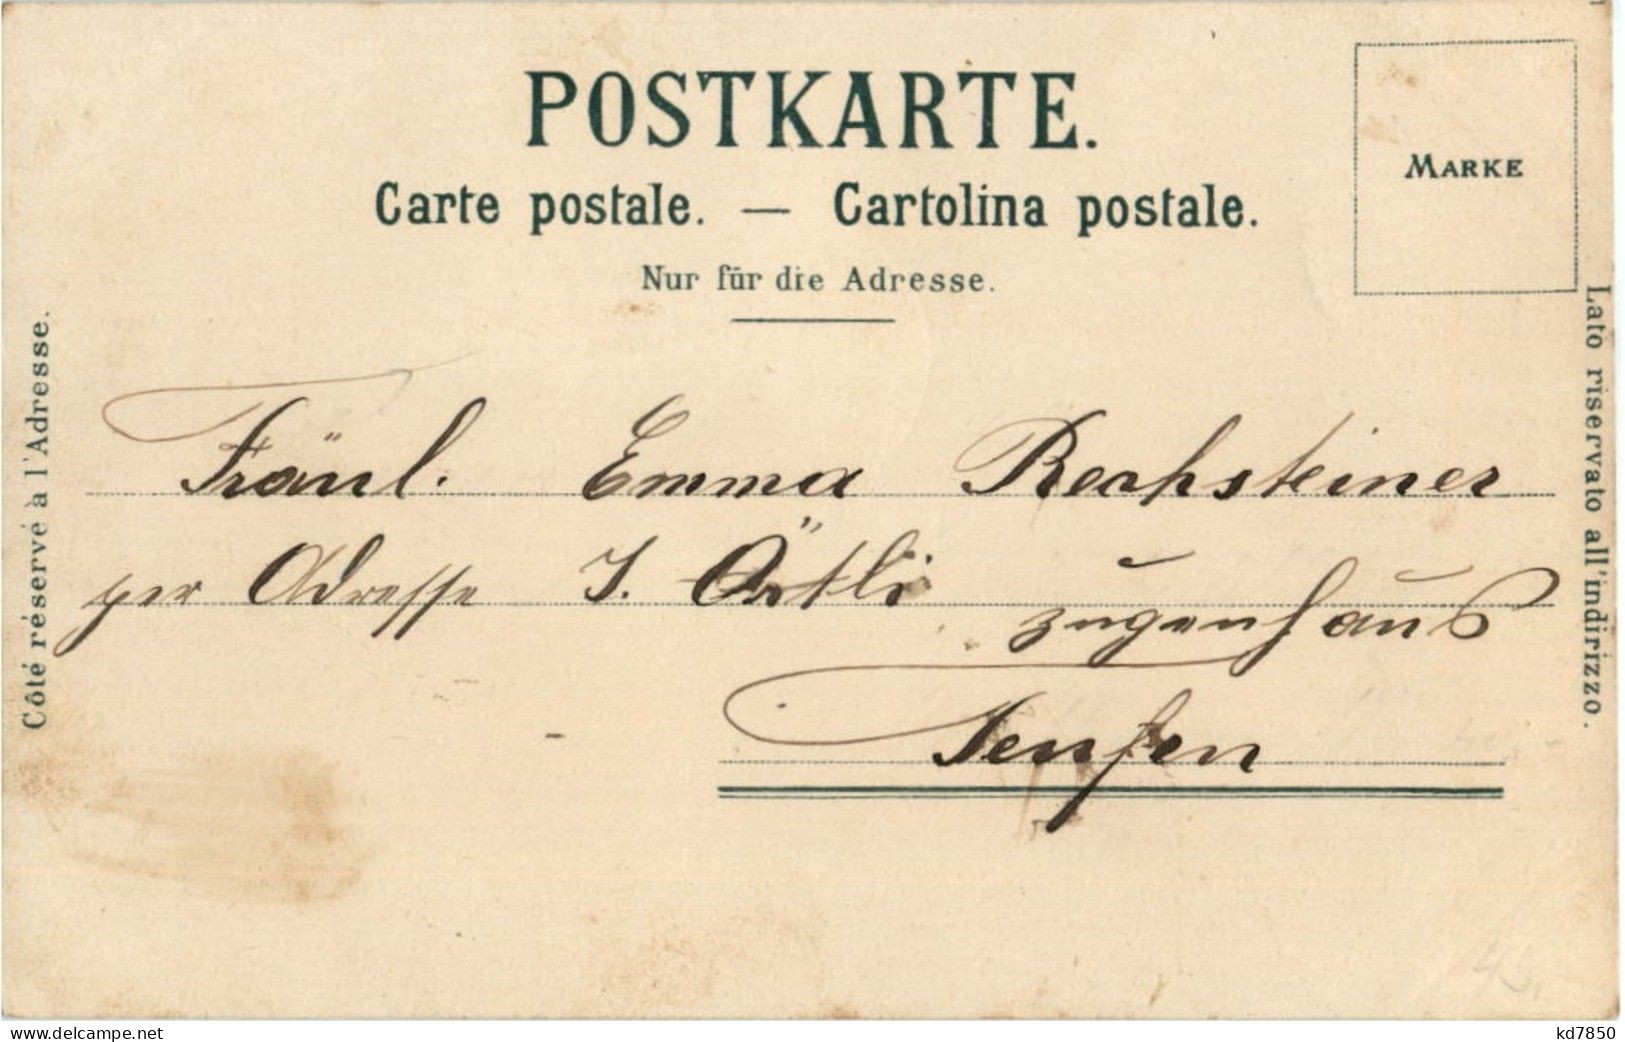 POSTKARTE.
Carte postale. — Cartolina postale.
Nur für die Adresse.
MARKE
Côté réservé à l'Adresse.
Lato riservato all'indirizzo.
Fräul. Emma Rechsteiner
per Adresse J. Örtli
Zugenhaus
Teufen
www.delcampe.net
kd7850